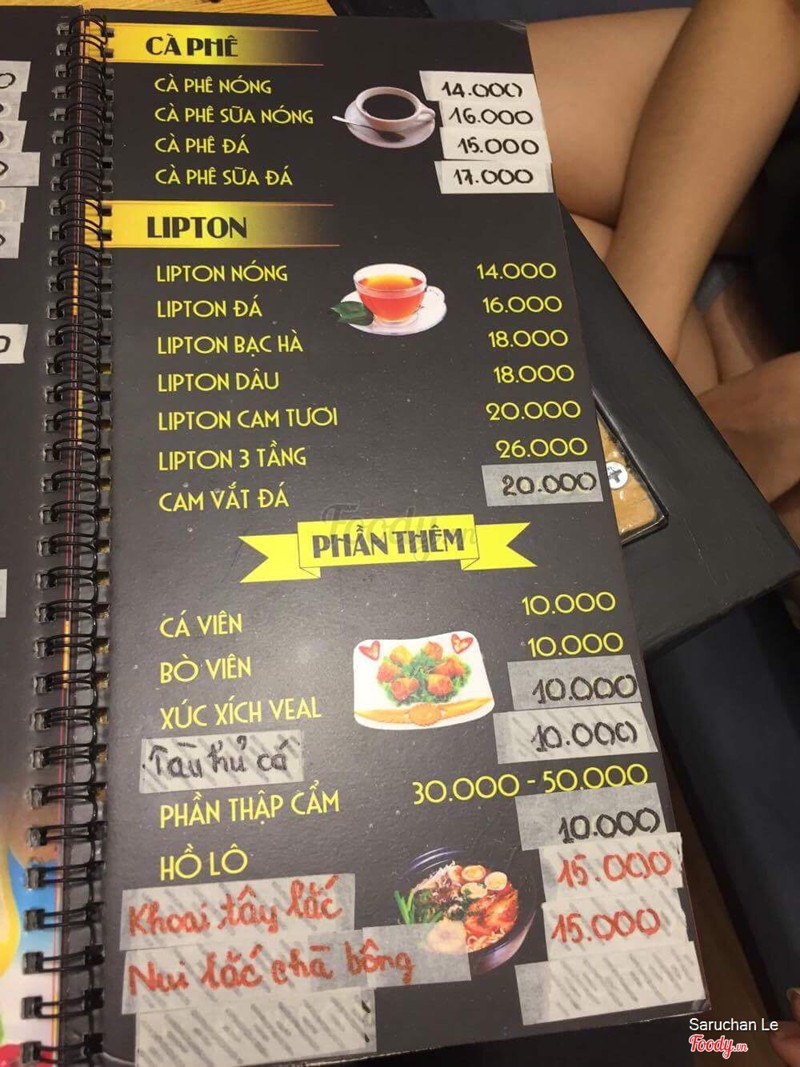 CÀ PHÊ
CÀ PHÊ NÓNG 14.000
CÀ PHÊ SỮA NÓNG 16.000
CÀ PHÊ ĐÁ 15.000
CÀ PHÊ SỮA ĐÁ 17.000
LIPTON
LIPTON NÓNG 14.000
LIPTON ĐÁ 16.000
LIPTON BẠC HÀ 18.000
LIPTON DÂU 18.000
LIPTON CAM TƯƠI 20.000
LIPTON 3 TẦNG 26.000
CAM VẮT ĐÁ 20.000
Foody.vn
PHẦN THÊM
CÁ VIÊN 10.000
BÒ VIÊN 10.000
XÚC XÍCH VEAL 10.000
Tàu hủ cá 10.000
PHẦN THẬP CẨM 30.000 - 50.000
HỒ LÔ 10.000
Khoai tây lắc 15.000
Nui lắc chà bông 15.000
Saruchan Le
Foody.vn